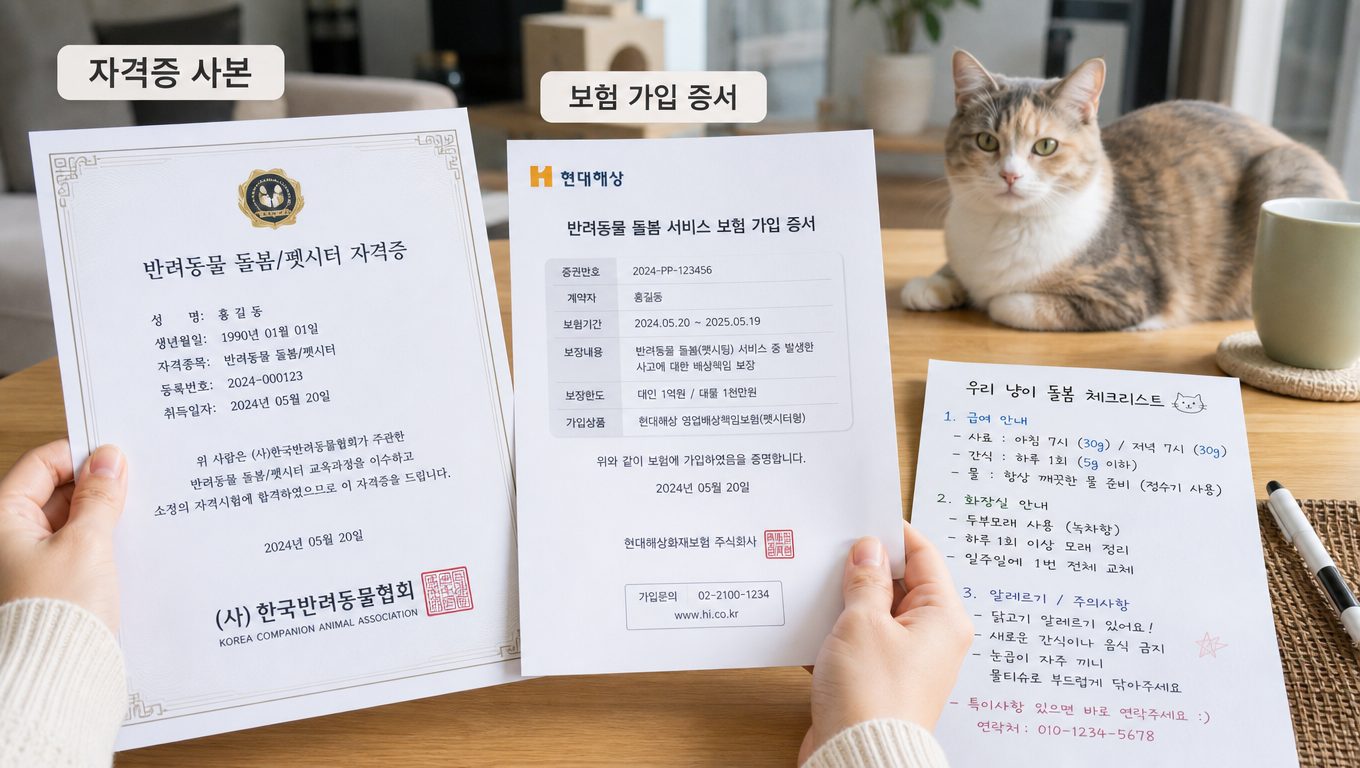 자격증 사본
반려동물 돌봄/펫시터 자격증
성 명: 홍 길 동
생년월일: 1990년 01월 01일
자격종목: 반려동물 돌봄/펫시터
등록번호: 2024-000123
취득일자: 2024년 05월 20일
위 사람은 (사)한국반려동물협회가 주관한
반려동물 돌봄/펫시터 교육과정을 이수하고
소정의 자격시험에 합격하였으므로 이 자격증을 드립니다.
2024년 05월 20일
(사) 한국반려동물협회
KOREA COMPANION ANIMAL ASSOCIATION
보험 가입 증서
H 현대해상
반려동물 돌봄 서비스 보험 가입 증서
증권번호 2024-PP-123456
계약자 홍길동
보험기간 2024.05.20 ~ 2025.05.19
보장내용 반려동물 돌봄(펫시팅) 서비스 중 발생한
사고에 대한 배상책임 보장
보장한도 대인 1억원 / 대물 1천만원
가입상품 현대해상 영업배상책임보험(펫시터형)
위와 같이 보험에 가입하였음을 증명합니다.
2024년 05월 20일
현대해상화재보험 주식회사
가입문의 02-2100-1234
www.hi.co.kr
우리 냥이 돌봄 체크리스트
1. 급여 안내
- 사료 : 아침 7시 (30g) / 저녁 7시 (30g)
- 간식 : 하루 1회 (5g 이하)
- 물 : 항상 깨끗한 물 준비 (정수기 사용)
2. 화장실 안내
- 두부모래 사용 (녹차향)
- 하루 1회 이상 모래 정리
- 일주일에 1번 전체 교체
3. 알레르기 / 주의사항
- 닭고기 알레르기 있어요!
- 새로운 간식이나 음식 금지
- 눈곱이 자주 끼니
물티슈로 부드럽게 닦아주세요
- 특이사항 있으면 바로 연락주세요 :)
연락처 : 010-1234-5678